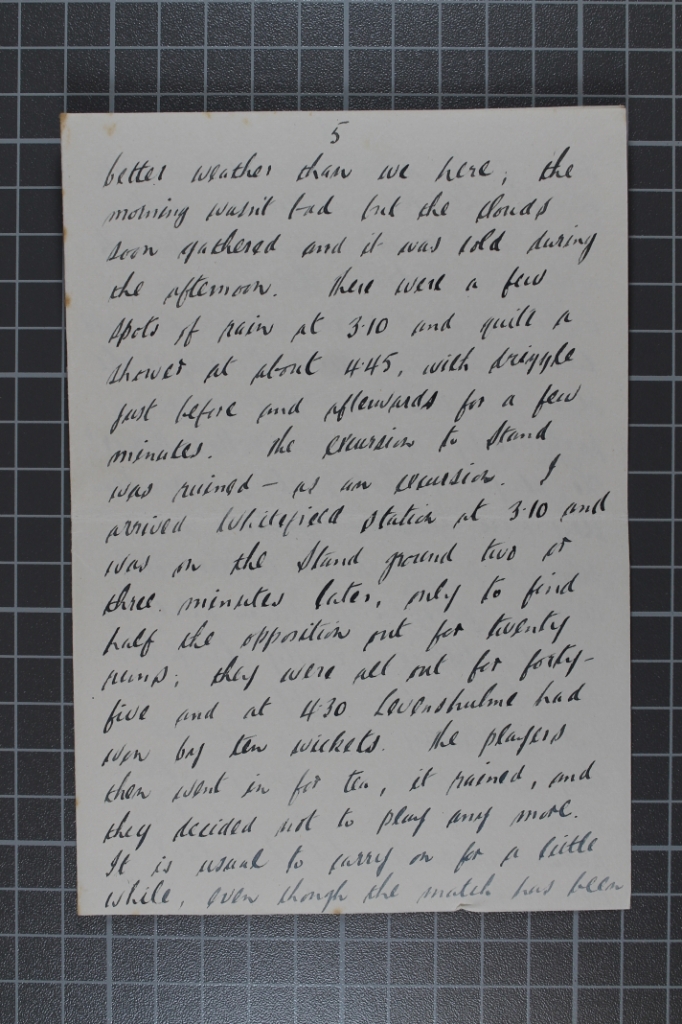 5
better weather than we here; the
morning wasn't bad but the clouds
soon gathered and it was cold during
the afternoon. There were a few
spots of rain at 3.10 and quite a
shower at about 4.45, with drizzle
just before and afterwards for a few
minutes. The excursion to Stand
was ruined – as an excursion. I
arrived Whitefield station at 3.10 and
was on the Stand ground two or
three minutes later, only to find
half the opposition out for twenty
runs; they were all out for forty-
five and at 4.30 Levenshulme had
won by ten wickets. The players
then went in for tea, it rained, and
they decided not to play any more.
It is usual to carry on for a little
while, even though the match has been